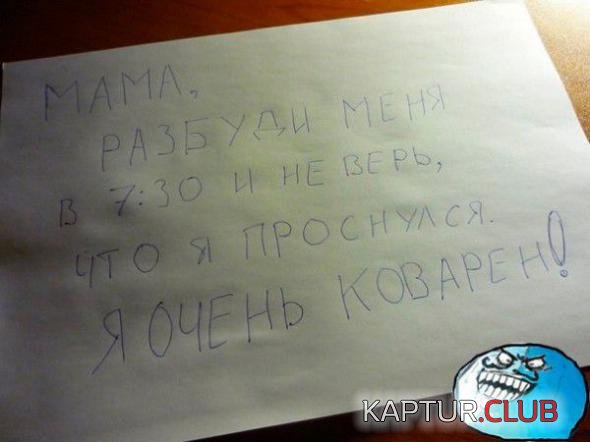 МАМА,
РАЗБУДИ МЕНЯ
В 7:30 И НЕ ВЕРЬ,
ЧТО Я ПРОСНУЛСЯ.
Я ОЧЕНЬ КОВАРЕН!
KAPTUR.CLUB